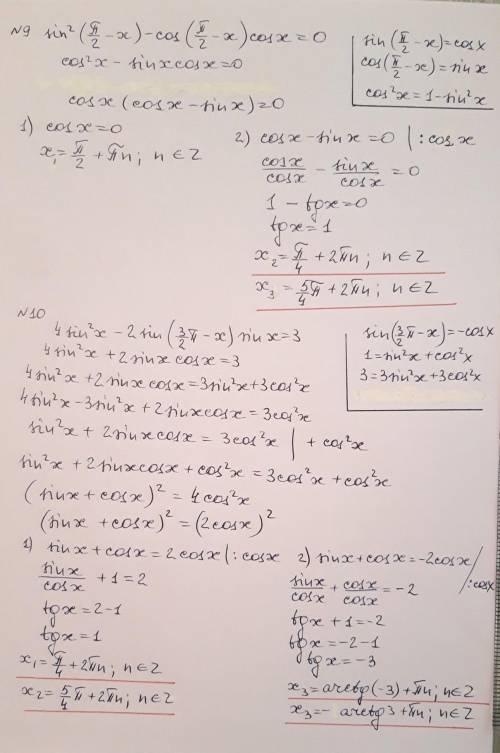 №9 sin²(π/2 - x) - cos(π/2 - x)cosx = 0
cos²x - sinxcosx = 0
cosx(cosx - sinx) = 0
sin(π/2 - x) = cosx
cos(π/2 - x) = sinx
cos²x = 1 - sin²x
1) cosx = 0
x₁ = π/2 + πn; n ∈ Z
2) cosx - sinx = 0 | : cosx
cosx/cosx - sinx/cosx = 0
1 - tgx = 0
tgx = 1
x₂ = π/4 + 2πn; n ∈ Z
x₃ = 5/4 π + 2πn; n ∈ Z
№10
4sin²x - 2sin(3/2 π - x) sinx = 3
4sin²x + 2sinxcosx = 3
4sin²x + 2sinxcosx = 3sin²x + 3cos²x
4sin²x - 3sin²x + 2sinxcosx = 3cos²x
sin²x + 2sinxcosx = 3cos²x | + cos²x
sin²x + 2sinxcosx + cos²x = 3cos²x + cos²x
(sinx + cosx)² = 4cos²x
(sinx + cosx)² = (2cosx)²
sin(3/2 π - x) = -cosx
1 = sin²x + cos²x
3 = 3sin²x + 3cos²x
1) sinx + cosx = 2cosx | : cosx
sinx/cosx + 1 = 2
tgx = 2 - 1
tgx = 1
x₁ = π/4 + 2πn; n ∈ Z
x₂ = 5/4 π + 2πn; n ∈ Z
2) sinx + cosx = -2cosx / : cosx
sinx/cosx + cosx/cosx = -2
tgx + 1 = -2
tgx = -2 - 1
tgx = -3
x₃ = arctg(-3) + πn; n ∈ Z
x₃ = - arctg3 + πn; n ∈ Z